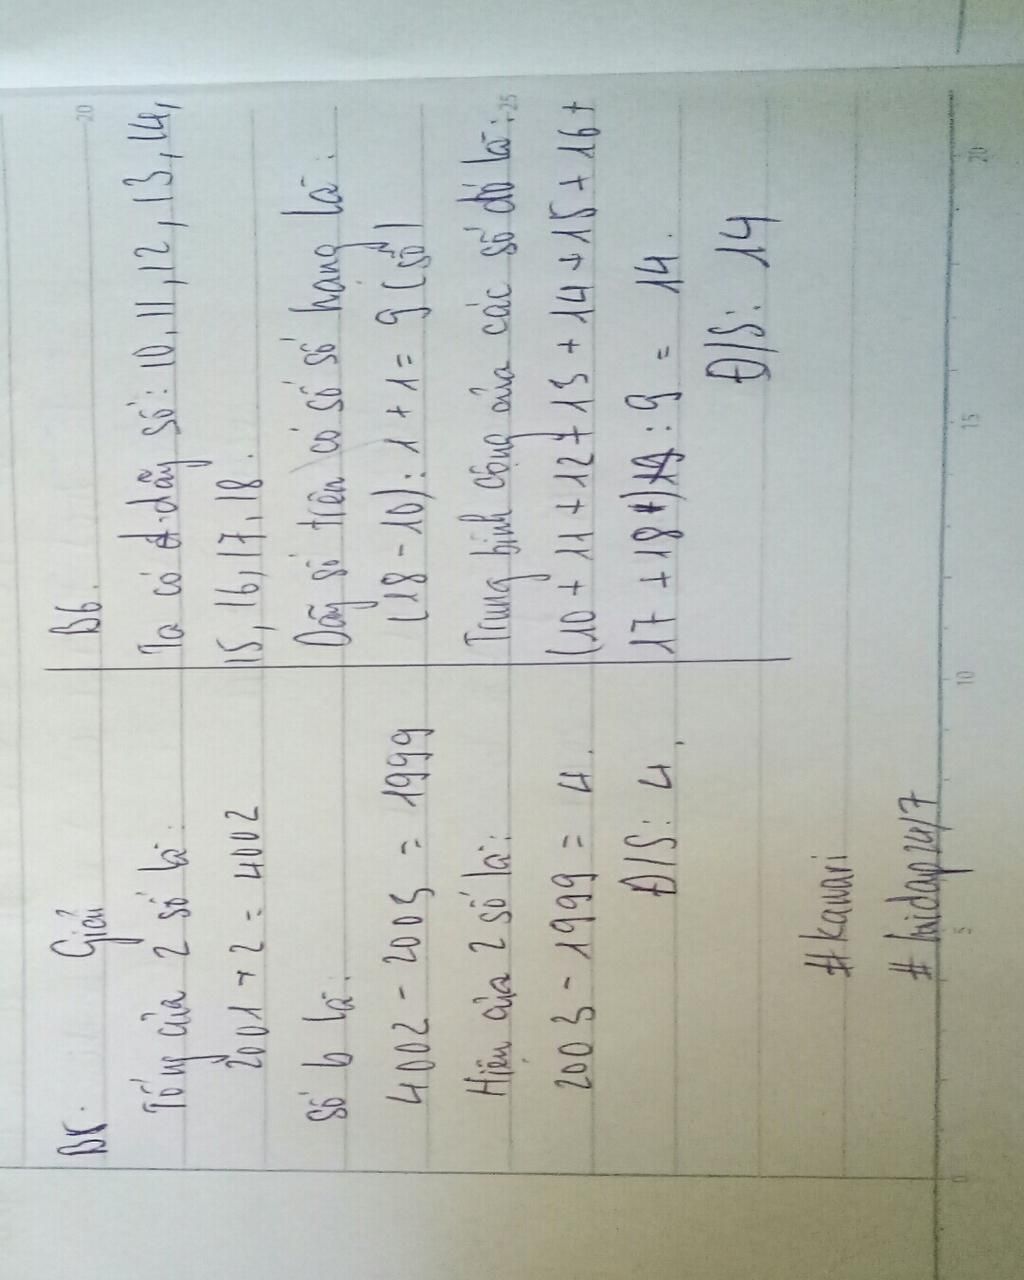 B5. Giải
Tổng của 2 số là:
2001 + 2 = 4002
Số b là:
4002 - 2003 = 1999
Hiệu của 2 số là:
2003 - 1999 = 4.
Đ/S: 4.
#kawari
# hidap24/7
B6.
Ta có dãy số: 10, 11, 12, 13, 14,
15, 16, 17, 18.
Dãy số trên có số số hạng là:
(18 - 10) : 1 + 1 = 9 (số)
Trung bình cộng của các số đó là:
(10 + 11 + 12 + 13 + 14 + 15 + 16 +
17 + 18) : 9 = 14.
Đ/S: 14
20
25
0
5
10
15
20